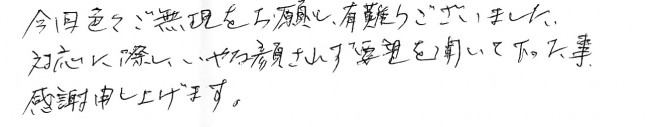 今回色々ご無理をお願いし、有難うございました。
対応に際し、いやな顔されず要望を聞いて下さった事
感謝申し上げます。